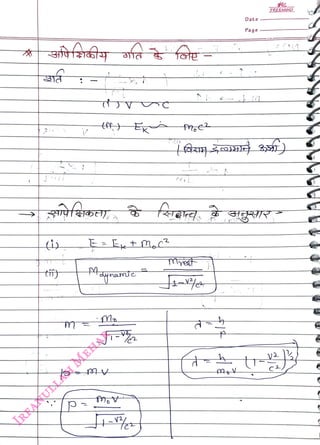 Date
Page
* आपेक्षिकीय गति के लिए -
शर्त : -
(i) V ~ C
(ii) E_K ~ m₀c²
(विराम द्रव्यमान ऊर्जा)
→ सापेक्षिकता के सिद्धान्त के अनुसार -
(i) E = E_K + m₀c²
(ii) M_dynamic = m_rest / √(1-v²/c²)
m = m₀ / √(1-v²/c²)
p = mv
∵ p = m₀v / √(1-v²/c²)
λ = h / p
λ = h / m₀v (1 - v²/c²)^½
IRFANULLAH MEHAR